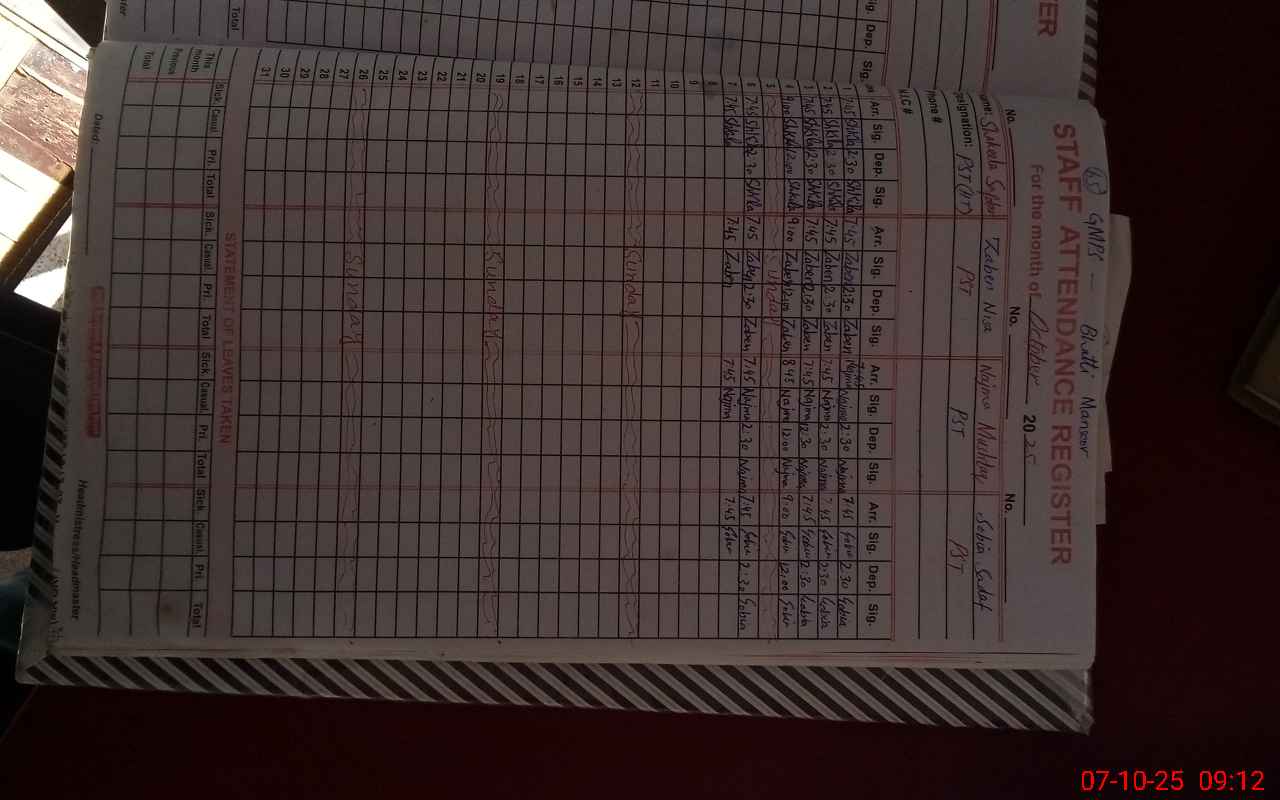 (65) GMPS — Bhatti Mansoor
STAFF ATTENDANCE REGISTER
For the month of October 2025
No. No. No.
Name: Shakeela Safdar Zaben Nisa Najma Mushtaq Sobia Sadaf
Designation: PST (HT) PST PST PST
Phone #
N.I.C #
Arr. Sig. Dep. Sig. Arr. Sig. Dep. Sig. Arr. Sig. Dep. Sig. Arr. Sig. Dep. Sig.
1 7:45 Shkla 2:30 Shkla 7:45 Zaben 2:30 Zaben 7:45 Najma 2:30 Najma 7:45 Sobia 2:30 Sobia
2 7:45 Shkla 2:30 Shkla 7:45 Zaben 2:30 Zaben 7:45 Najma 2:30 Najma 7:45 Sobia 2:30 Sobia
3 7:45 Shkla 2:30 Shkla 7:45 Zaben 2:30 Zaben 7:45 Najma 2:30 Najma 7:45 Sobia 2:30 Sobia
4 9:00 Shkla 12:00 Shkla 9:00 Zaben 12:00 Zaben 8:45 Najma 12:00 Najma 9:00 Sobia 12:00 Sobia
5 Sunday
6 7:45 Shkla 2:30 Shkla 7:45 Zaben 2:30 Zaben 7:45 Najma 2:30 Najma 7:45 Sobia 2:30 Sobia
7 7:45 Shkla 7:45 Zaben 7:45 Najma 7:45 Sobia
8
9
10
11
12 Sunday
13
14
15
16
17
18
19 Sunday
20
21
22
23
24
25
26 Sunday
27
28
29
30
31
STATEMENT OF LEAVES TAKEN
Sick Casual Pri. Total Sick. Casual. Pri. Total Sick Casual. Pri. Total Sick Casual. Pri. Total
This month
Previous
Total
Dated: Headmistress/Headmaster
TER
Sig. Dep. Sig.
Total
07-10-25 09:12